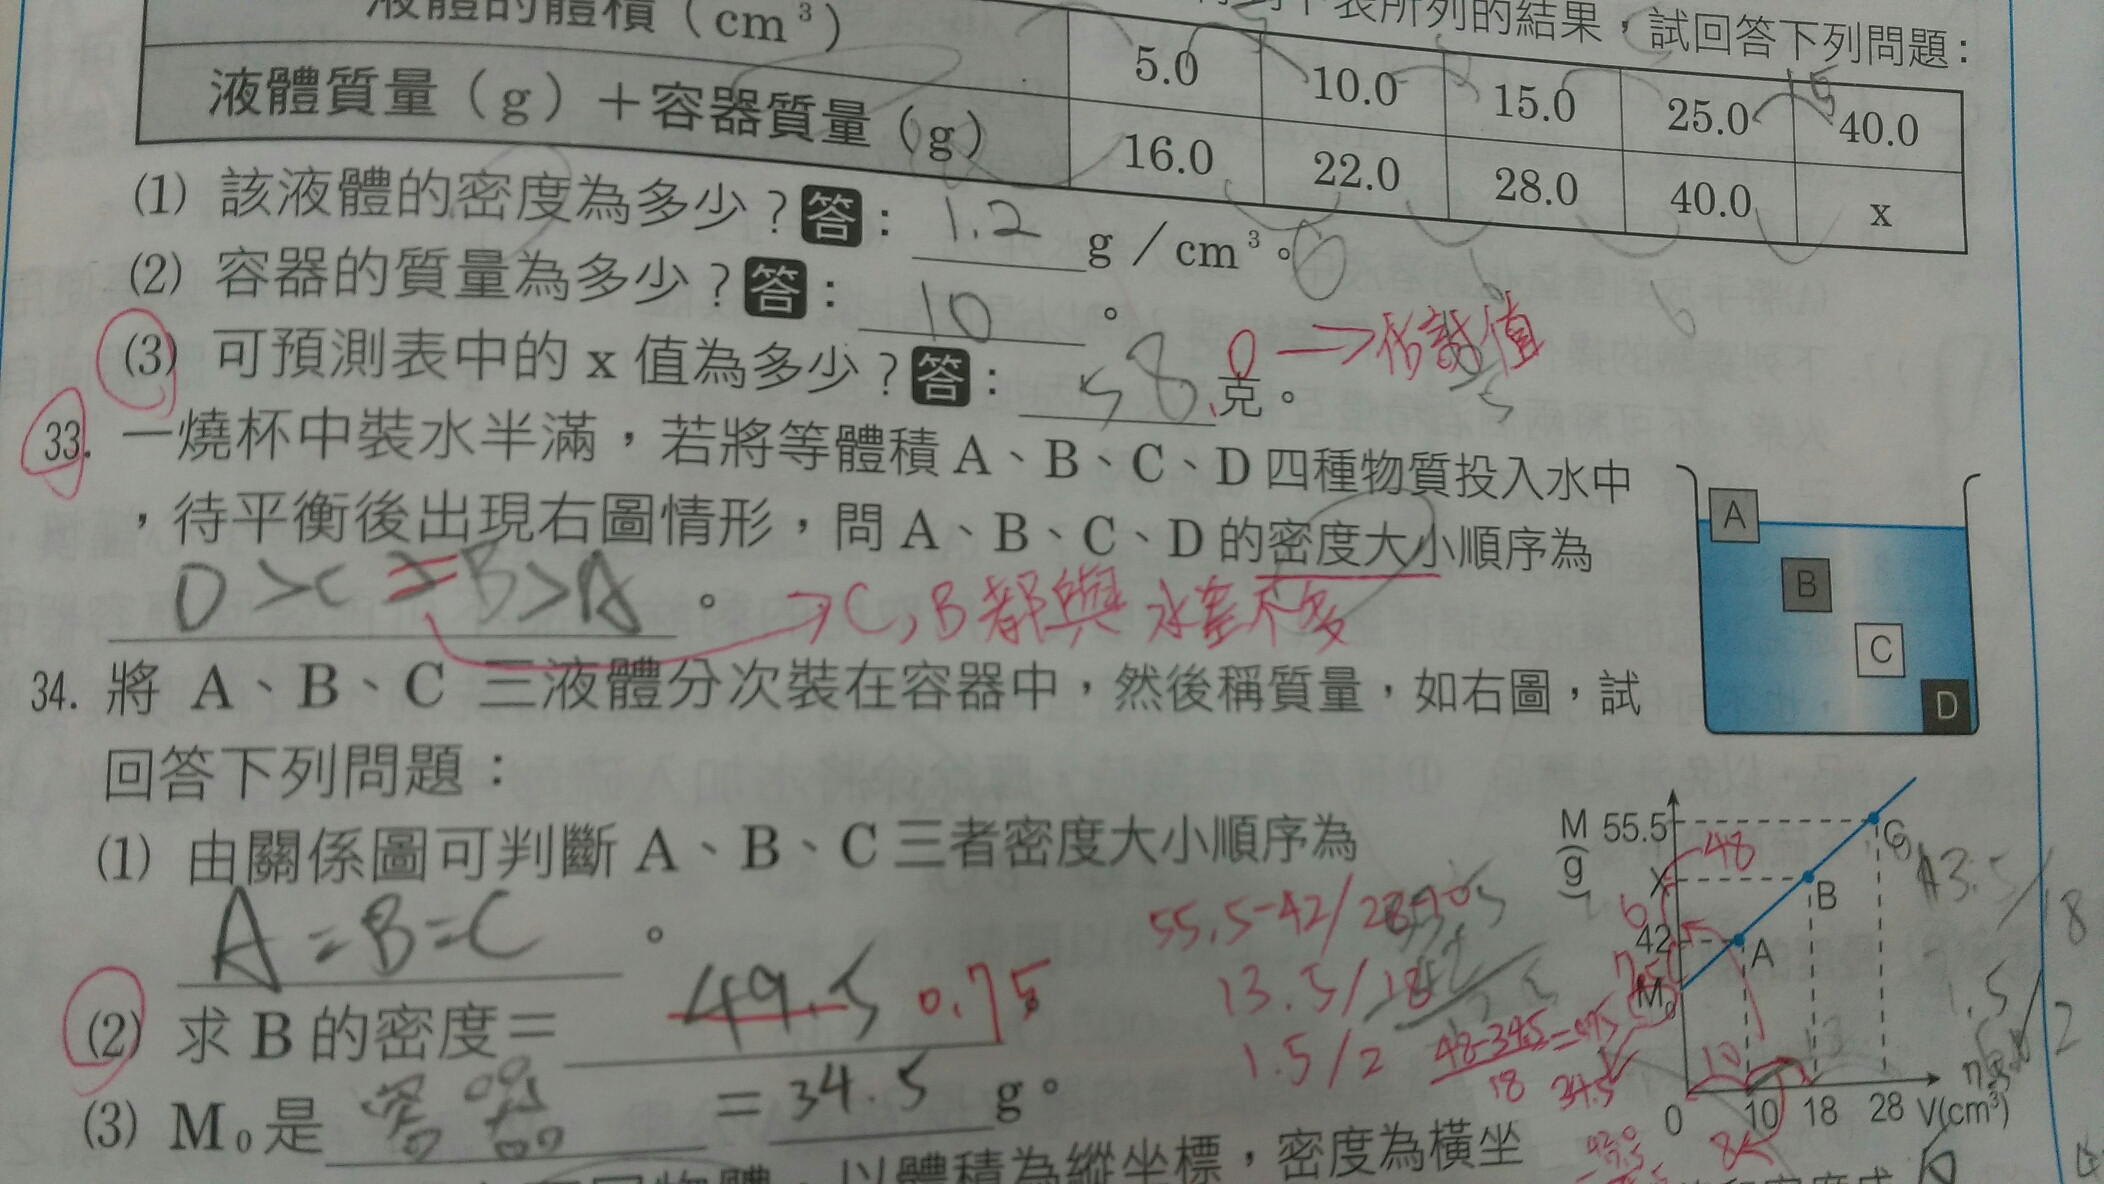 得到下表所列的結果，試回答下列問題：
液體的體積（cm³） 5.0 10.0 15.0 25.0 40.0
液體質量（g）＋容器質量（g） 16.0 22.0 28.0 40.0 x
15
(1) 該液體的密度為多少？答：1.2 g／cm³。
6
(2) 容器的質量為多少？答：10。
6
(3) 可預測表中的 x 值為多少？答：58.0克。
0 → 估計值
33. 一燒杯中裝水半滿，若將等體積 A、B、C、D 四種物質投入水中
，待平衡後出現右圖情形，問 A、B、C、D 的密度大小順序為
D > C = B > A。
→ C, B 都與水差不多
A
B
C
D
34. 將 A、B、C 三液體分次裝在容器中，然後稱質量，如右圖，試
回答下列問題：
(1) 由關係圖可判斷 A、B、C 三者密度大小順序為
A = B = C。
(2) 求 B 的密度＝ 49.5 0.75
(3) M₀是 容器 ＝34.5 g。
55.5-42/28-10
13.5/18
1.5/2
48-34.5
18
=0.75
34.5
M
(g)
55.5
48
X
6
42
7.5
M₀
C
B
A
10
8
0 10 18 28 V(cm³)
13.5/18
1.5/2
，以體積為縱坐標，密度為橫坐